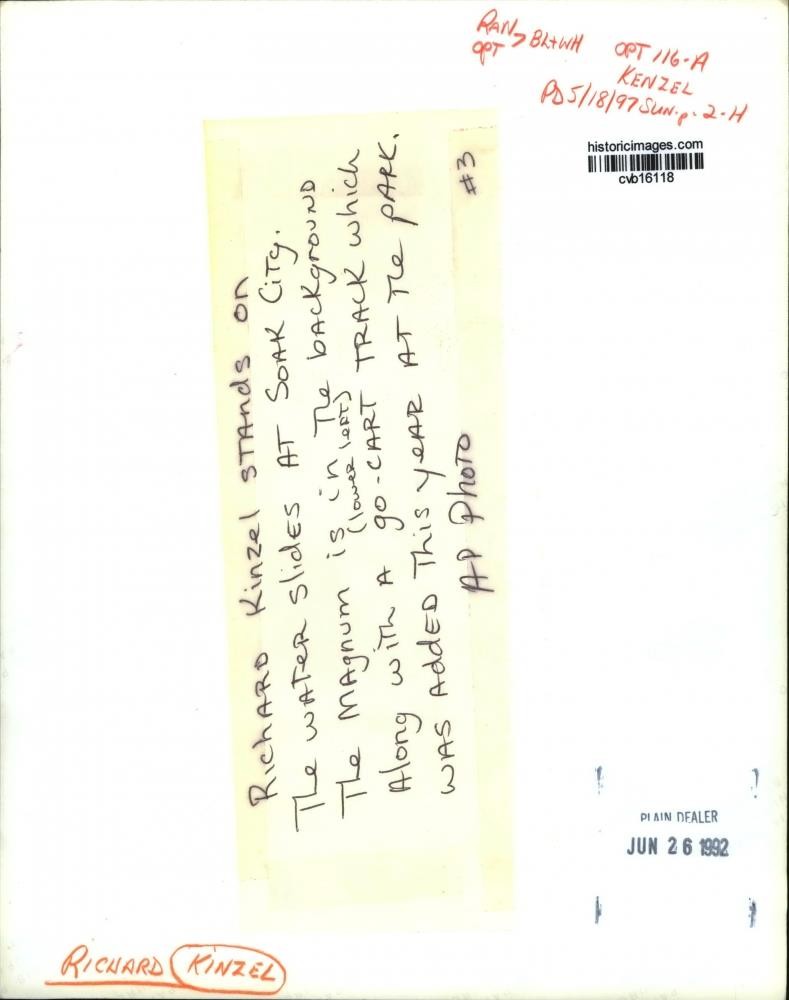 RAN > BL+WH
OPT
OPT 116-A
KENZEL
PD 5/18/97 SUN. p. 2-H
historicimages.com
cvb16118
RicHARD Kinzel STAnds on
The WATeR Slides AT SOAK CiTy.
The MAgnum is in The bACkgROUND
(loweR lefT)
Along wiTh A go-CART TRACK which
wAS AddED This yeAR AT The pARK.
AP PhoTo
#3
PLAIN DEALER
JUN 26 1992
RICHARD KINZEL